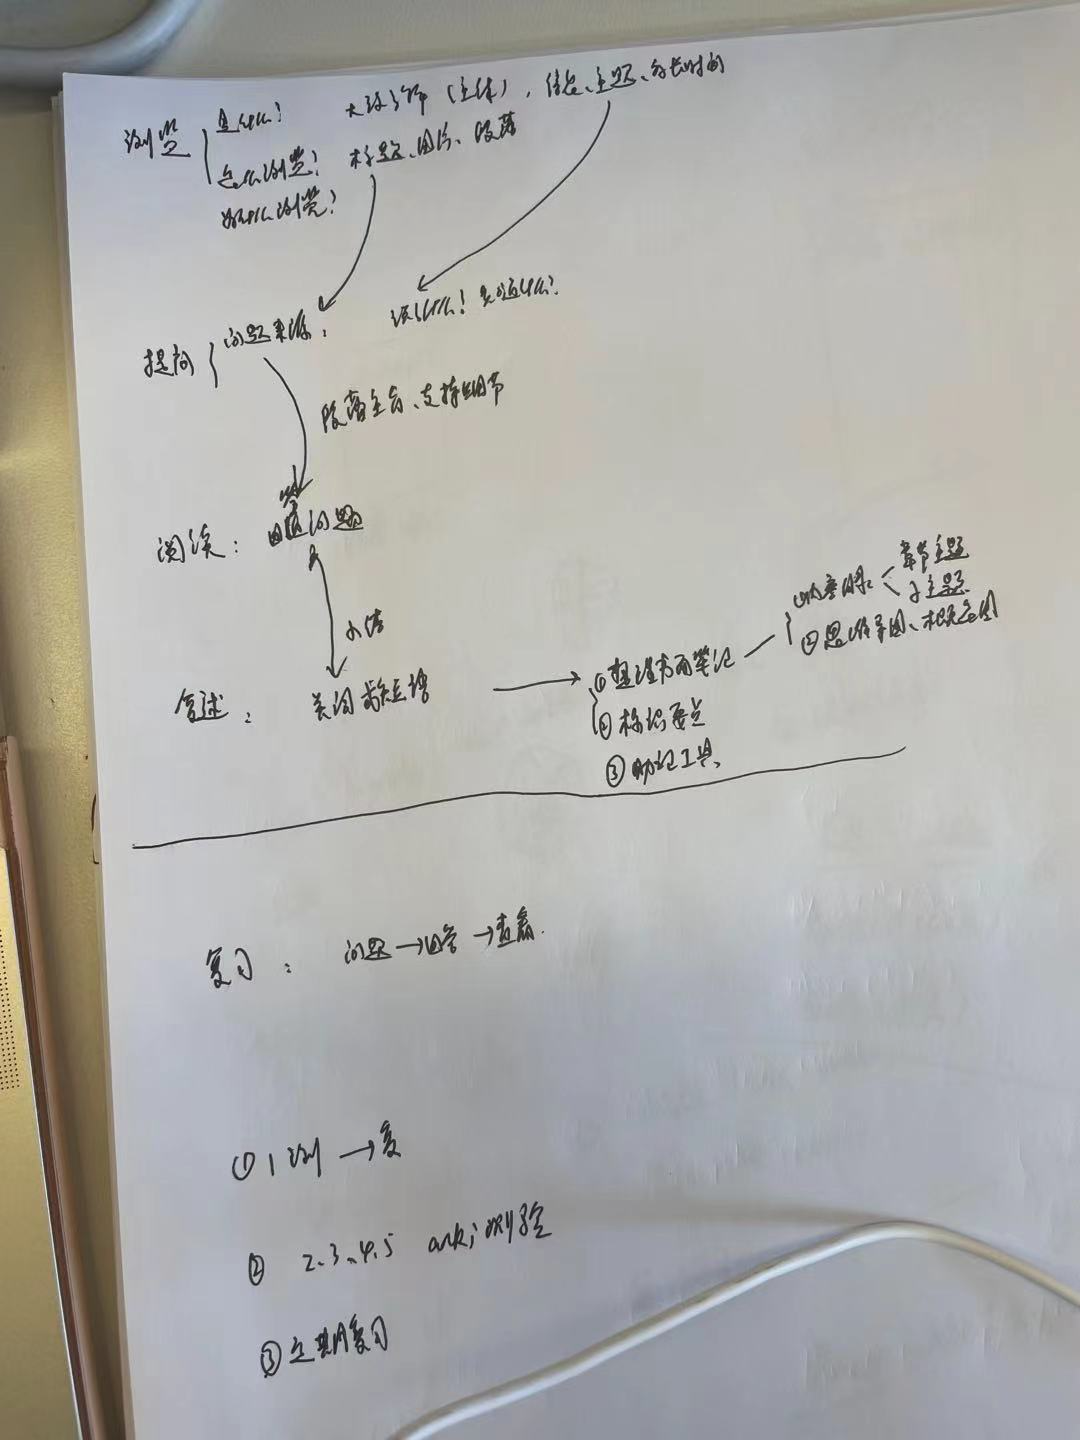 浏览 是什么? 大致了解(主体),信息、主题、所花时间
怎么浏览? 标题、图片、段落
为什么浏览?
提问 问题来源: 谈什么! 知道什么?
段落主旨、支持细节
阅读: 回答问题
小结
复述: 关词或短语 → ①整理书面笔记
①内容目录 章节主题
子主题
②思维导图、概念图
②标识要点
③助记工具、
复习: 问题→回答→查看.
① 1 浏 →复
② 2、3、4、5 anki 测验
③ 定期复习